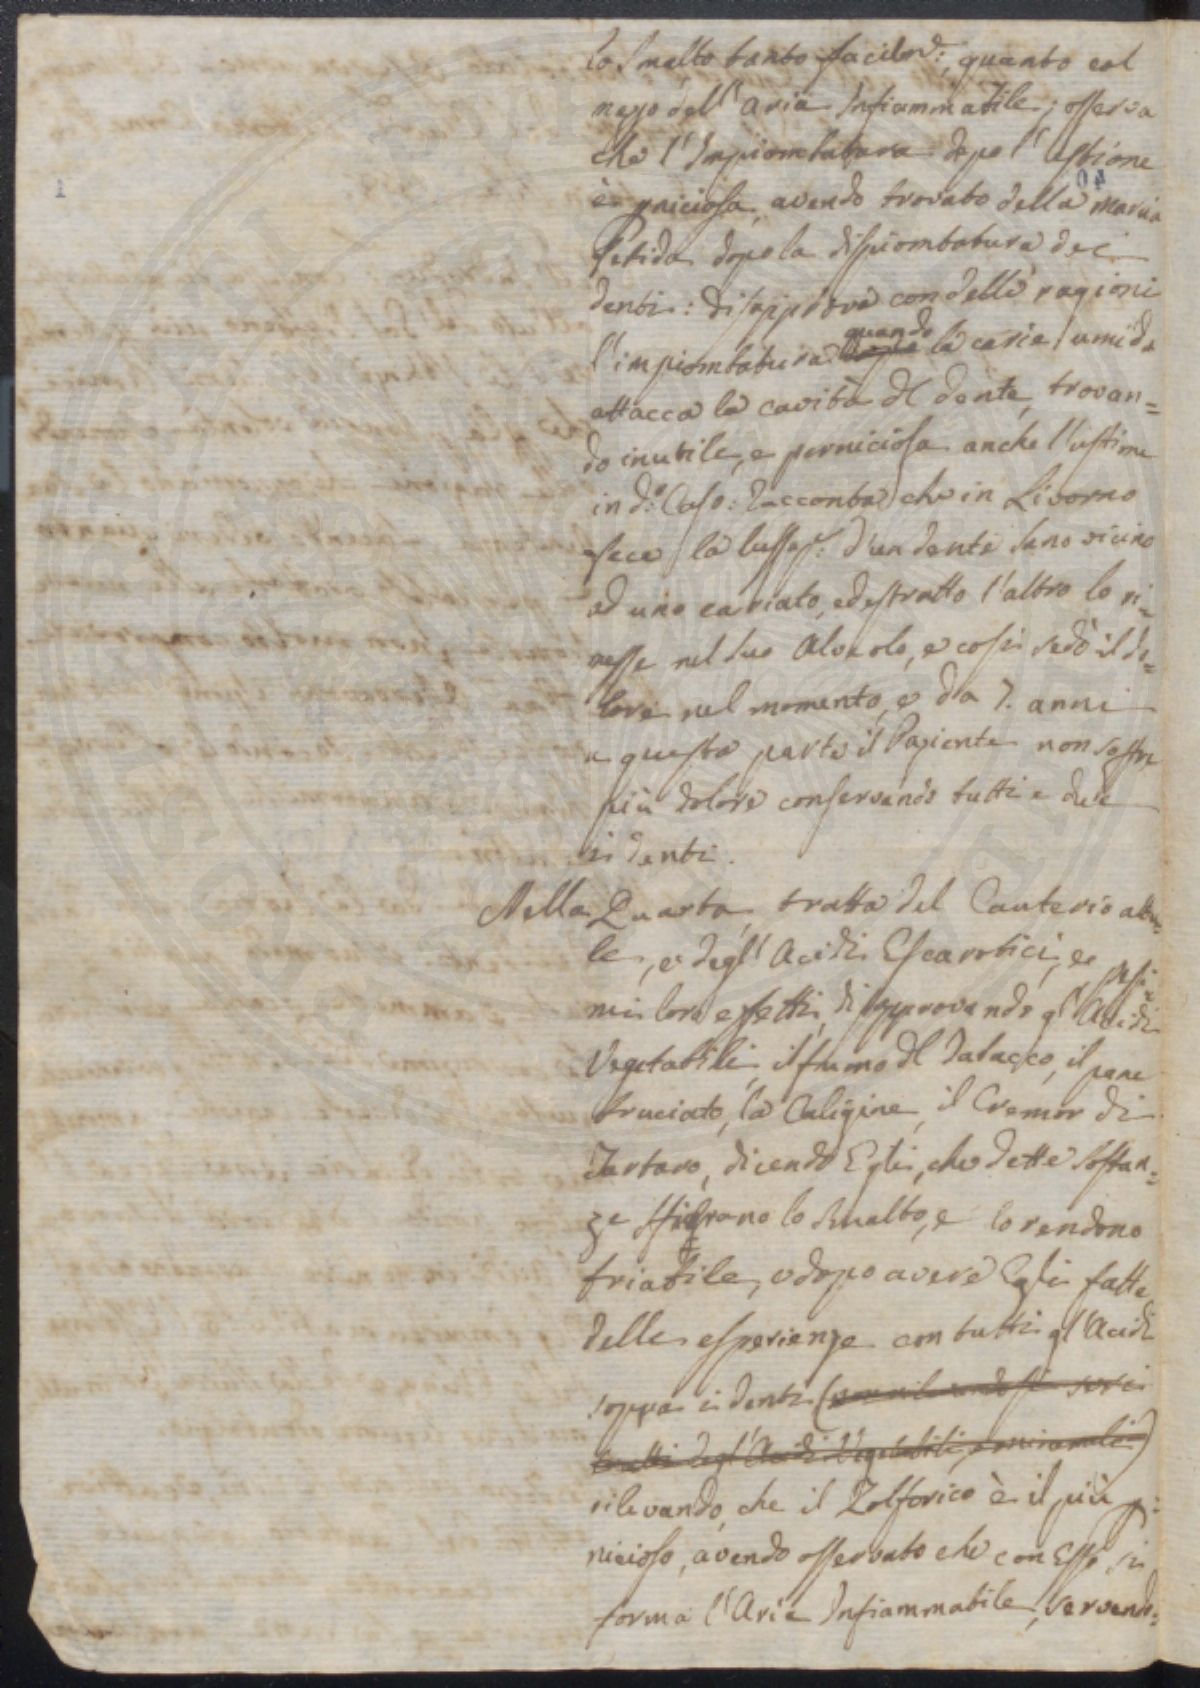 lo Smalto tanto facilm.e, quanto col
mezzo dell' Aria Infiammabile; osserva
che l'Impiombatura dopo l'ustione
è pniciosa, avendo trovato della marcia
fetida dopo la dispiombatura dei
denti: disapprova con delle ragioni
l'impiombatura quando la carie umida
attacca la cavità dl dente, trovan=
do inutile, e perniciosa anche l'ustione
in d.o Caso: racconta che in Livorno
fece la lussaz.e d'un dente sano vicino
ad uno cariato, ed estratto l'altro lo ri=
messe nel suo Alveolo, e così sedò il do=
lore nel momento, e da 7. anni
a questa parte il Paziente non soffre
più dolore conservando tutti e due
i denti.
Nella Quarta, tratta del Cauterio attua
le, e degl' Acidi Escarotici, e
mi loro effetti, disapprovando gl' Acidi
Vegetabili, il fumo dl Tabacco, il pane
bruciato, la Caligine, il Cremor di
Tartaro, dicendo Egli, che dette Sostan=
ze sfibrano lo smalto, e lo rendono
friabile, e dopo avere Egli fatte
delle esperienze con tutti gl' Acidi
soppra i denti (
tratti degl' Acidi Vegetabili, e minerali)
rilevando, che il Zolforico è il più p:
nicioso, avendo osservato che con Esso, si
forma l'Aria Infiammabile, servendo=